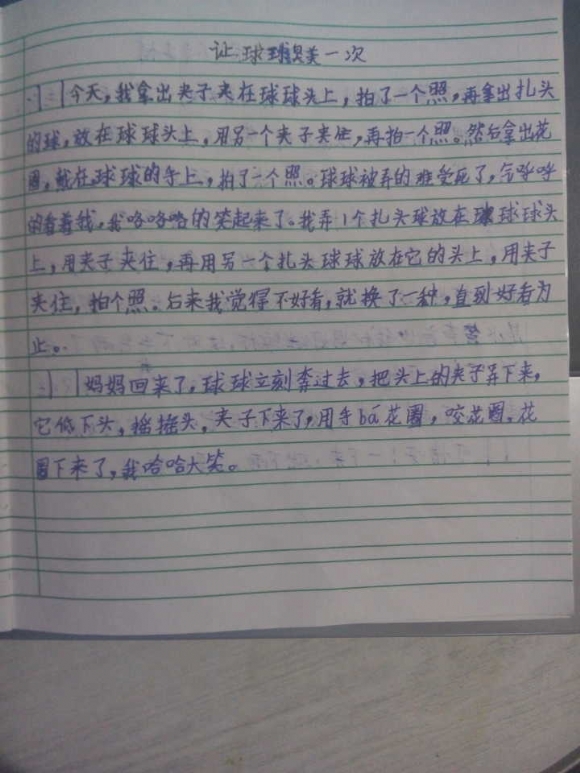 让球球臭美一次
今天,我拿出夹子夹在球球头上,拍了一个照,再拿出扎头
的球,放在球球头上,用另一个夹子夹住,再拍一个照。然后拿出花
圈,戴在球球的手上,拍了一个照。球球被弄的难受死了,气呼呼
的看着我,我咯咯咯的笑起来了。我弄1个扎头球放在球球头
上,用夹子夹住,再用另一个扎头球球放在它的头上,用夹子
夹住,拍个照。后来我觉得不好看,就换了一种,直到好看为
止。
妈妈回来了,球球立刻奔过去,把头上的夹子弄下来,
它低下头,摇摇头,夹子下来了,用手bā花圈,咬花圈,花
圈下来了,我哈哈大笑。